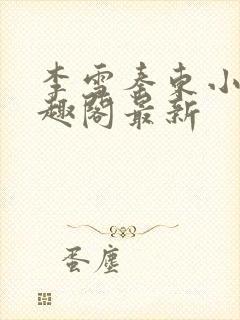 李雪秦东小
趣阁最新
蛋塵